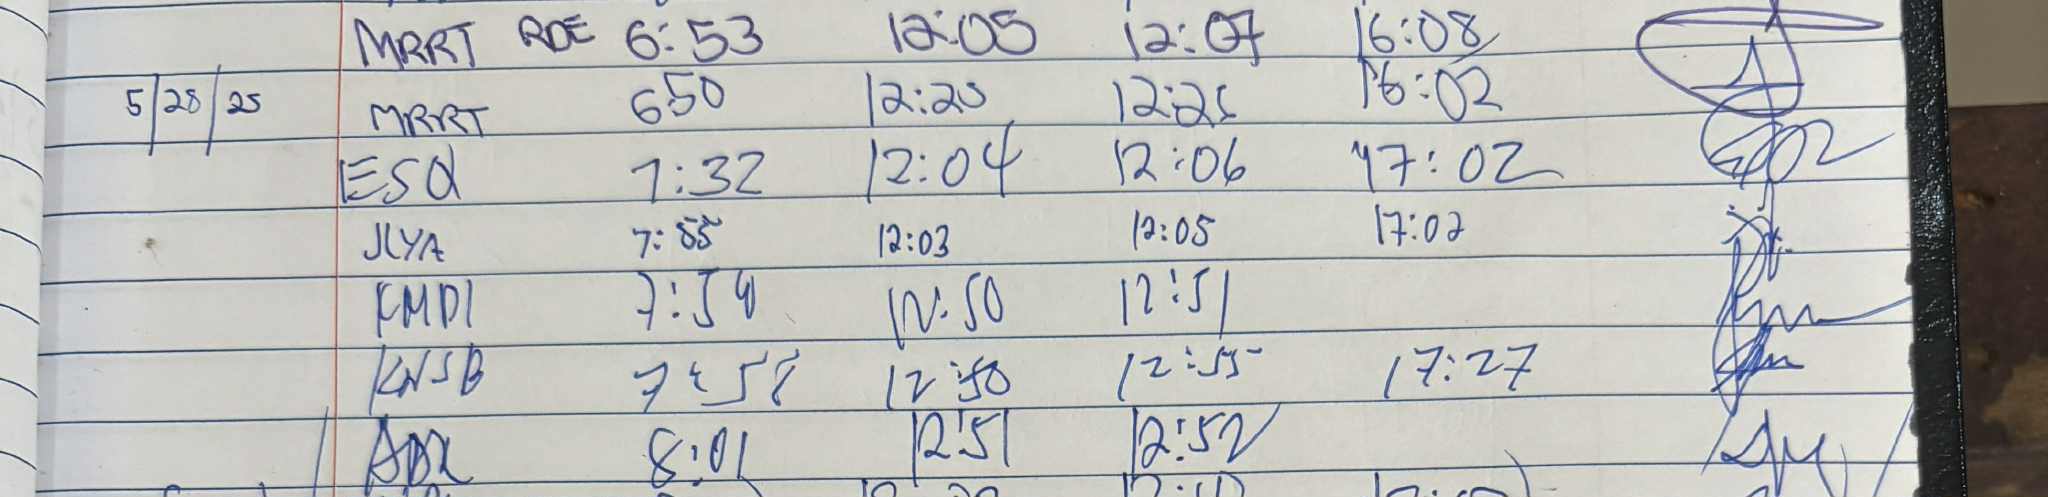 MRRT RDE 6:53 12:05 12:07 16:08
5/28/25 MRRT 6:50 12:20 12:21 16:02
ESQ 7:32 12:04 12:06 17:02
JLYA 7:55 12:03 12:05 17:02
KMDI 7:54 12:50 12:51
KNSB 7:58 12:50 12:55 17:27
8:01 12:51 12:52